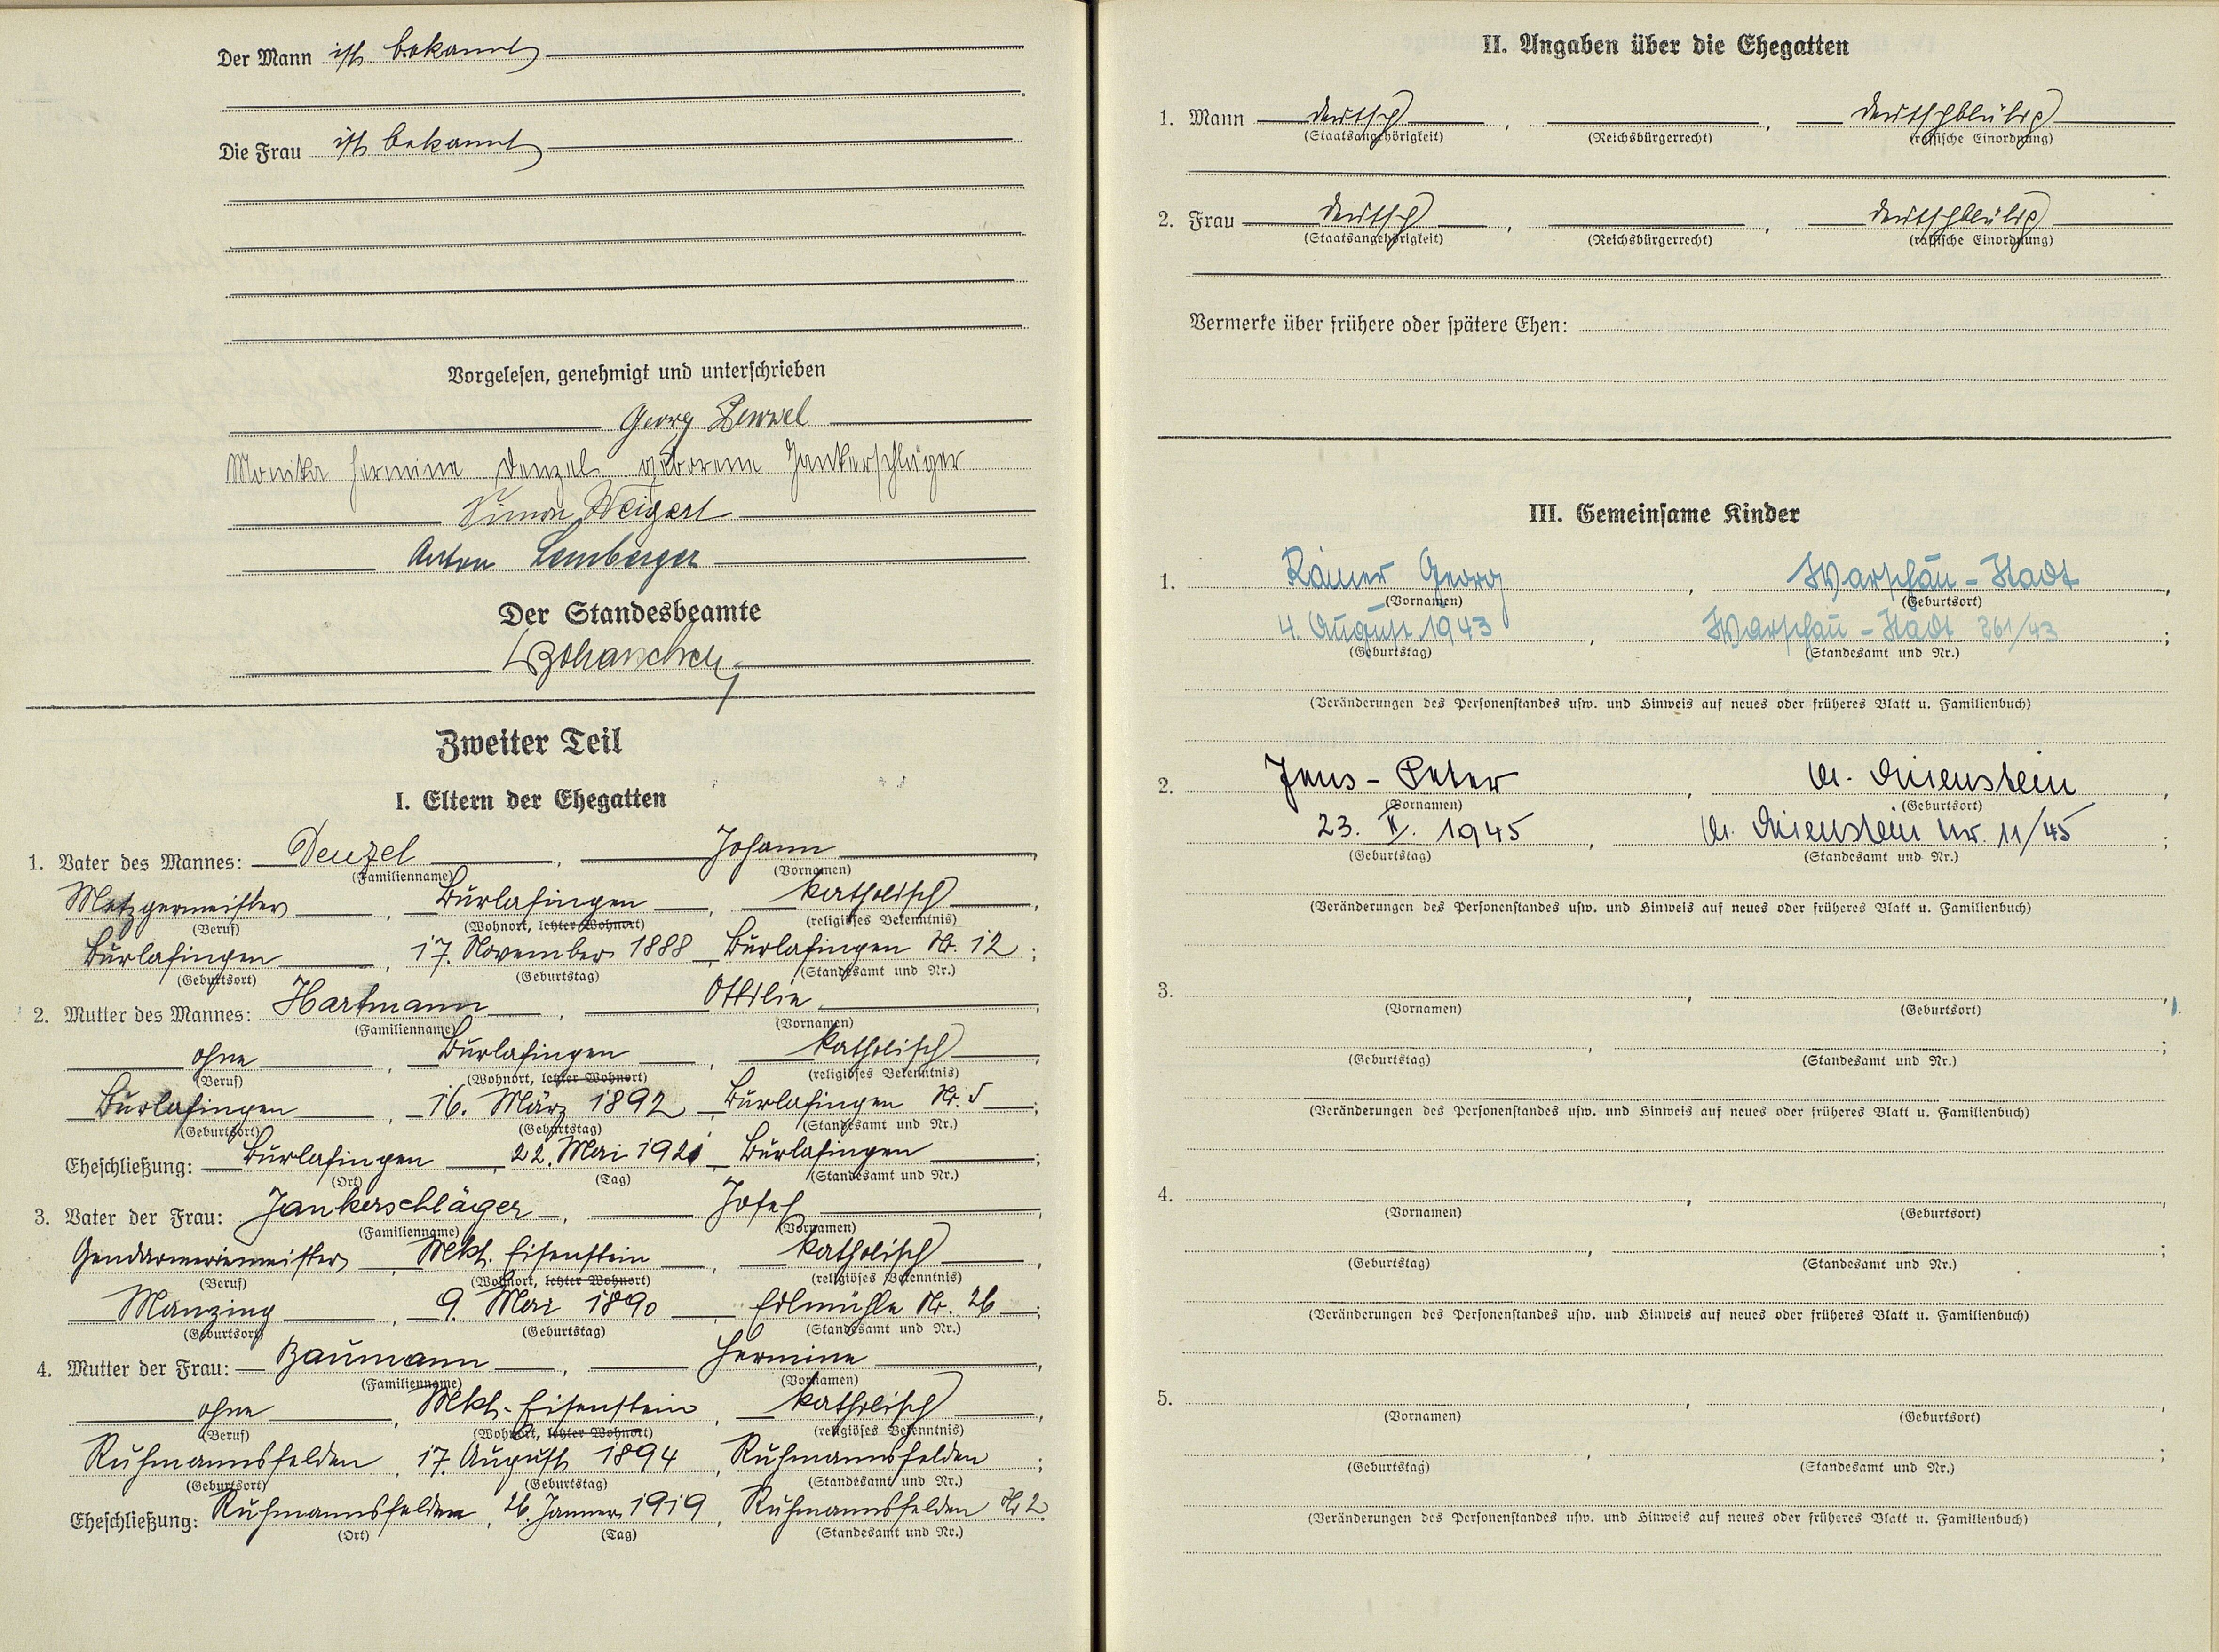 Der Mann ist bekannt
Die Frau ist bekannt
Vorgelesen, genehmigt und unterschrieben
Georg Denzel
Monika Hermine Denzel geborene Jankerschläger
Simon Weigert
Anton Lemberger
Der Standesbeamte
Zweiter Teil
I. Eltern der Ehegatten
1. Vater des Mannes: Denzel, Johann,
(Familienname) (Vornamen)
Metzgermeister, Burlafingen, katholisch,
(Beruf) (Wohnort, letzter Wohnort) (religiöses Bekenntnis)
Burlafingen, 17. November 1888, Burlafingen Nr. 12;
(Geburtsort) (Geburtstag) (Standesamt und Nr.)
2. Mutter des Mannes: Hartmann, Ottilie,
(Familienname) (Vornamen)
ohne, Burlafingen, katholisch,
(Beruf) (Wohnort, letzter Wohnort) (religiöses Bekenntnis)
Burlafingen, 16. März 1892, Burlafingen Nr. 5;
(Geburtsort) (Geburtstag) (Standesamt und Nr.)
Eheschließung: Burlafingen, 22. Mai 1921, Burlafingen;
(Ort) (Tag) (Standesamt und Nr.)
3. Vater der Frau: Jankerschläger, Josef,
(Familienname) (Vornamen)
Gendarmeriemeister, Mkt. Eisenstein, katholisch,
(Beruf) (Wohnort, letzter Wohnort) (religiöses Bekenntnis)
Manzing, 9. Mai 1890, Nr. 26;
(Geburtsort) (Geburtstag) (Standesamt und Nr.)
4. Mutter der Frau: Baumann, Hermine,
(Familienname) (Vornamen)
ohne, Mkt. Eisenstein, katholisch,
(Beruf) (Wohnort, letzter Wohnort) (religiöses Bekenntnis)
Ruhmannsfelden, 17. August 1894, Ruhmannsfelden;
(Geburtsort) (Geburtstag) (Standesamt und Nr.)
Eheschließung: Ruhmannsfelden, 26. Jänner 1919, Ruhmannsfelden Nr 2.
(Ort) (Tag) (Standesamt und Nr.)
II. Angaben über die Ehegatten
1. Mann deutsch, , deutschblütig
(Staatsangehörigkeit) (Reichsbürgerrecht) (rassische Einordnung)
2. Frau deutsch, , deutschblütig
(Staatsangehörigkeit) (Reichsbürgerrecht) (rassische Einordnung)
Vermerke über frühere oder spätere Ehen:
III. Gemeinsame Kinder
1. Rainer Georg, Warschau-Stadt,
(Vornamen) (Geburtsort)
4. August 1943, Warschau-Stadt 261/43;
(Geburtstag) (Standesamt und Nr.)
(Veränderungen des Personenstandes usw. und Hinweis auf neues oder früheres Blatt u. Familienbuch)
2. Jens-Peter, M. Eisenstein,
(Vornamen) (Geburtsort)
23. II. 1945, M. Eisenstein Nr. 11/45;
(Geburtstag) (Standesamt und Nr.)
(Veränderungen des Personenstandes usw. und Hinweis auf neues oder früheres Blatt u. Familienbuch)
3. , ,
(Vornamen) (Geburtsort)
, ;
(Geburtstag) (Standesamt und Nr.)
(Veränderungen des Personenstandes usw. und Hinweis auf neues oder früheres Blatt u. Familienbuch)
4. , ,
(Vornamen) (Geburtsort)
, ;
(Geburtstag) (Standesamt und Nr.)
(Veränderungen des Personenstandes usw. und Hinweis auf neues oder früheres Blatt u. Familienbuch)
5. , ,
(Vornamen) (Geburtsort)
, ;
(Geburtstag) (Standesamt und Nr.)
(Veränderungen des Personenstandes usw. und Hinweis auf neues oder früheres Blatt u. Familienbuch)